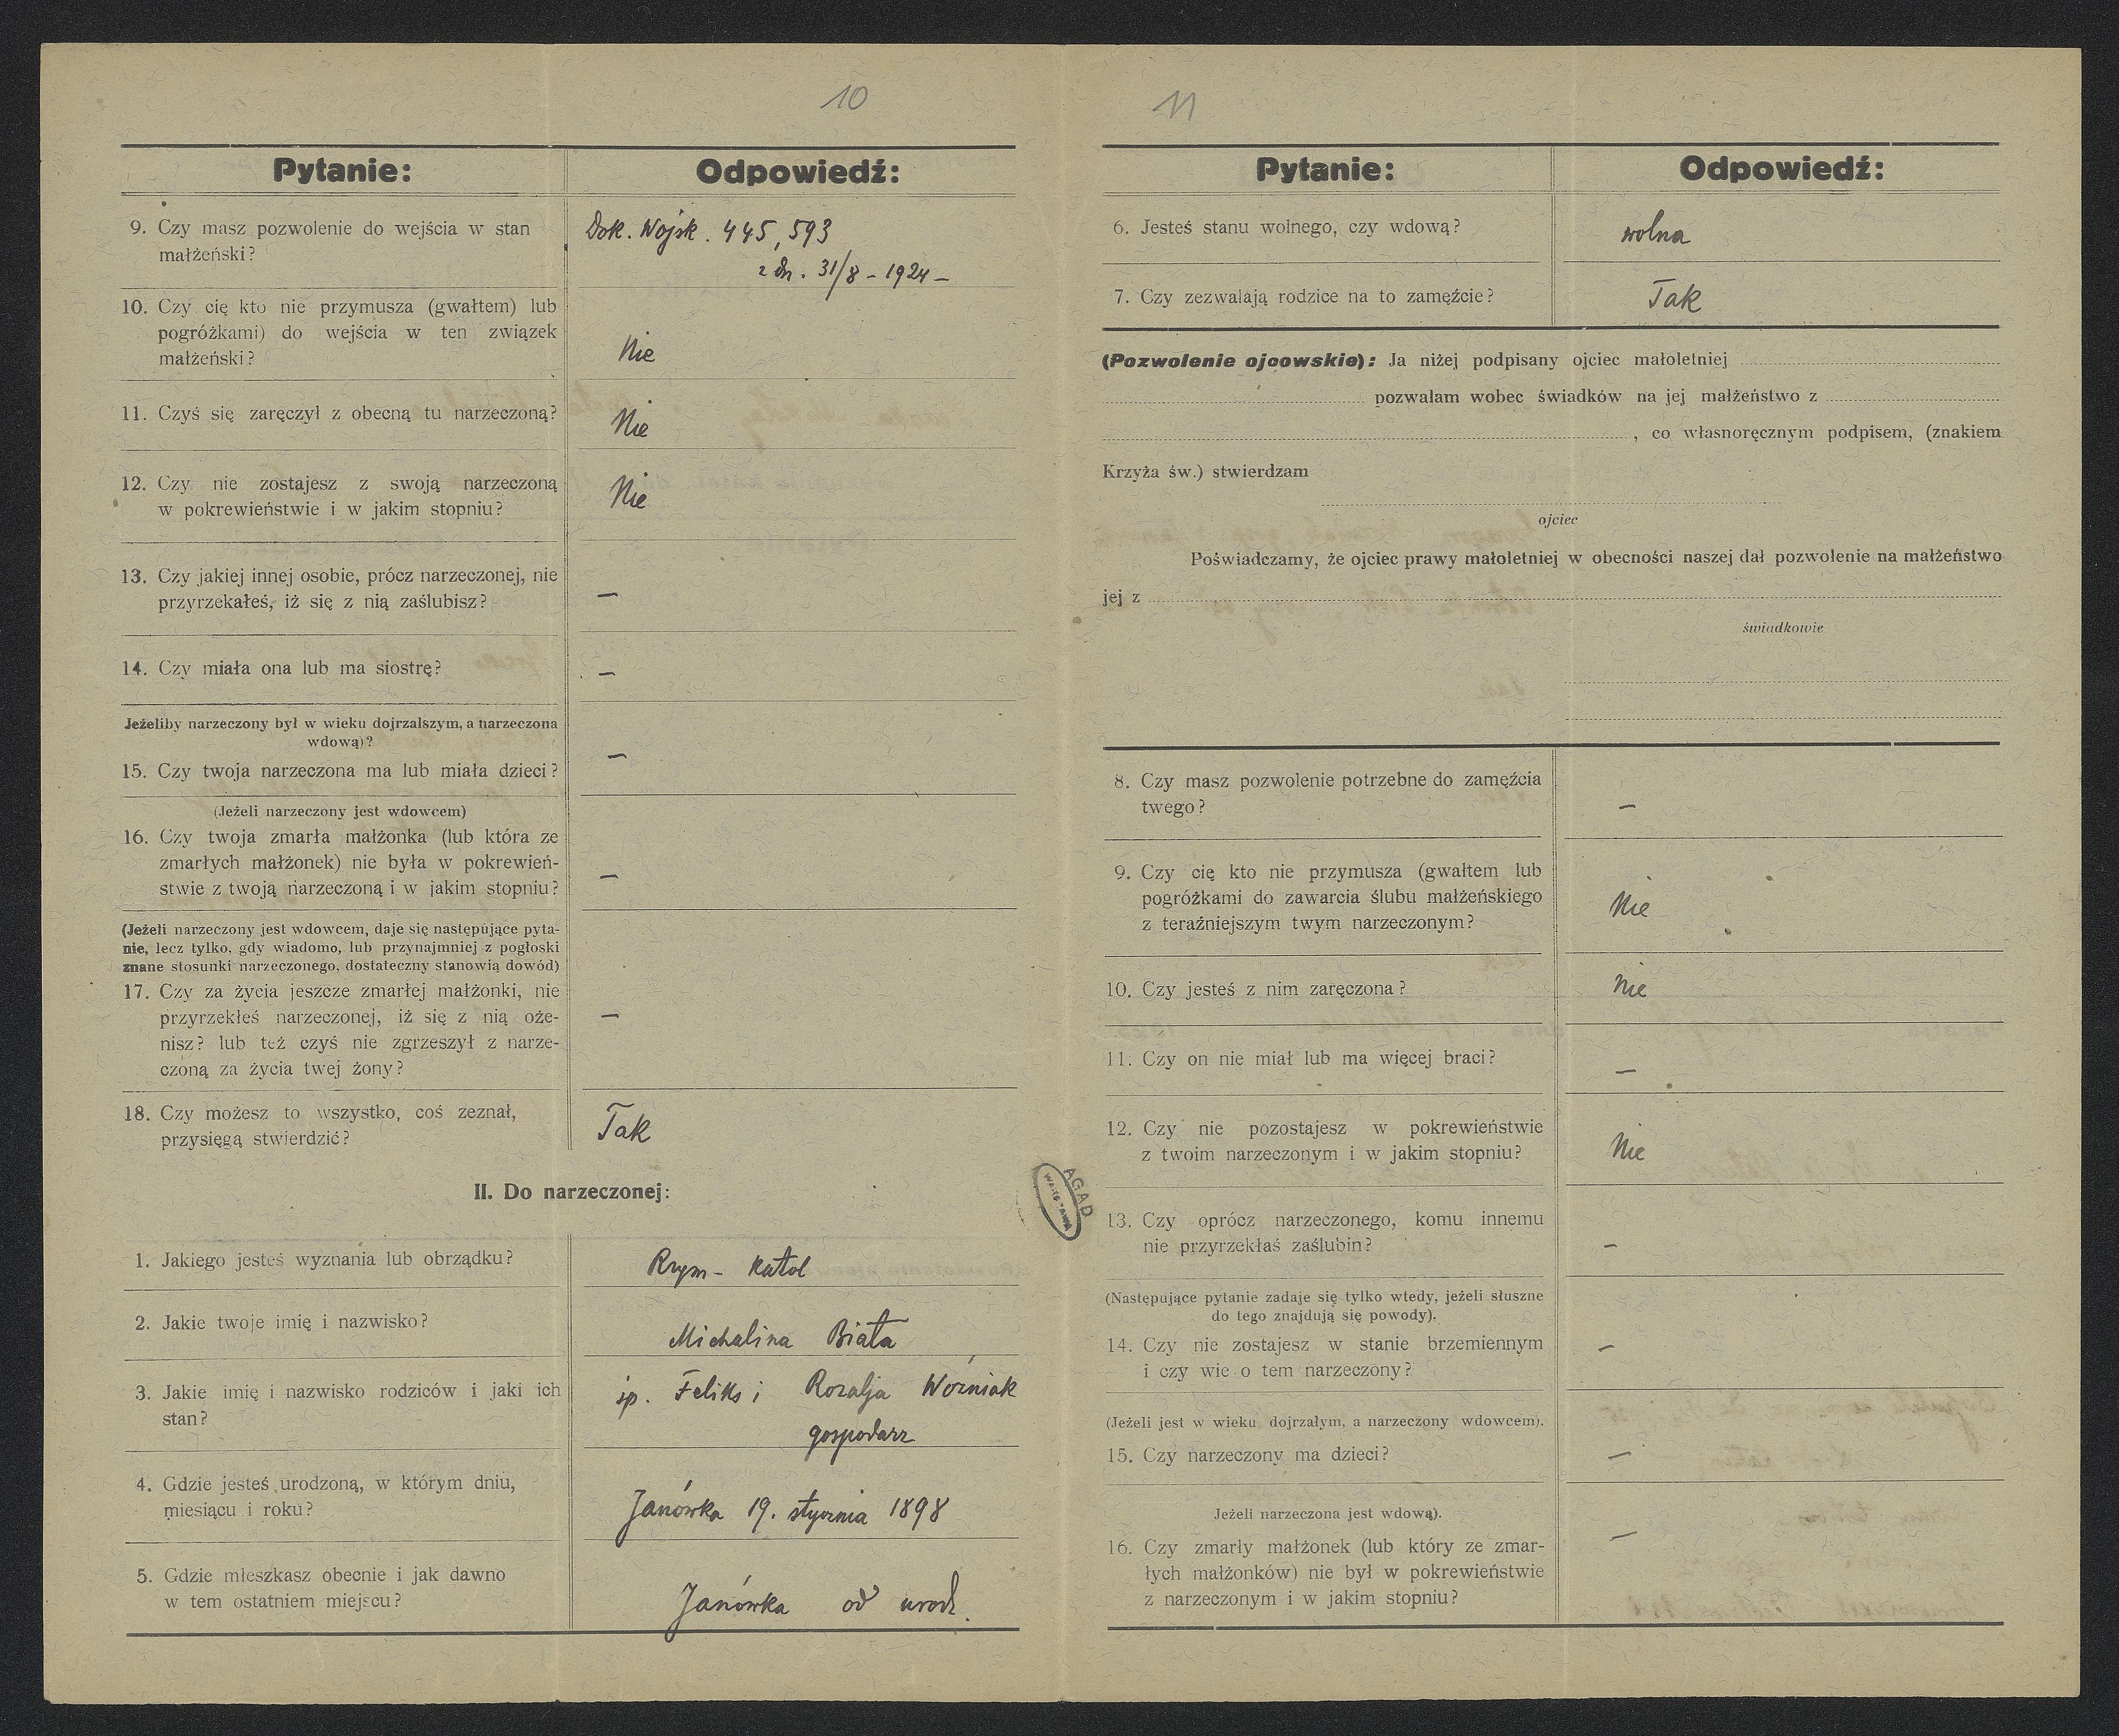 10
Pytanie:
Odpowiedź:
9. Czy masz pozwolenie do wejścia w stan
małżeński?
Dok. Wojsk. 445,593
z dn. 31/8 - 1924 -
10. Czy cię kto nie przymusza (gwałtem) lub
pogróżkami) do wejścia w ten związek
małżeński?
Nie
11. Czyś się zaręczył z obecną tu narzeczoną?
Nie
12. Czy nie zostajesz z swoją narzeczoną
w pokrewieństwie i w jakim stopniu?
Nie
13. Czy jakiej innej osobie, prócz narzeczonej, nie
przyrzekałeś, iż się z nią zaślubisz?
—
14. Czy miała ona lub ma siostrę?
—
Jeżeliby narzeczony był w wieku dojrzalszym, a narzeczona
wdową)?
15. Czy twoja narzeczona ma lub miała dzieci?
—
(Jeżeli narzeczony jest wdowcem)
16. Czy twoja zmarła małżonka (lub która ze
zmarłych małżonek) nie była w pokrewień-
stwie z twoją narzeczoną i w jakim stopniu?
—
(Jeżeli narzeczony jest wdowcem, daje się następujące pyta-
nie, lecz tylko, gdy wiadomo, lub przynajmniej z pogłoski
znane stosunki narzeczonego, dostateczny stanowią dowód)
17. Czy za życia jeszcze zmarłej małżonki, nie
przyrzekłeś narzeczonej, iż się z nią oże-
nisz? lub też czyś nie zgrzeszył z narze-
czoną za życia twej żony?
—
18. Czy możesz to wszystko, coś zeznał,
przysięgą stwierdzić?
Tak
II. Do narzeczonej:
1. Jakiego jesteś wyznania lub obrządku?
Rzym - katol
2. Jakie twoje imię i nazwisko?
Michalina Biała
3. Jakie imię i nazwisko rodziców i jaki ich
stan?
śp. Feliks i Rozalja Woźniak
gospodarz
4. Gdzie jesteś urodzoną, w którym dniu,
miesiącu i roku?
Janówka 19. stycznia 1898
5. Gdzie mieszkasz obecnie i jak dawno
w tem ostatniem miejscu?
Janówka od urodz.
AGAD
WARSZAWA
11
Pytanie:
Odpowiedź:
6. Jesteś stanu wolnego, czy wdową?
wolna
7. Czy zezwalają rodzice na to zamęźcie?
Tak
(Pozwolenie ojcowskie): Ja niżej podpisany ojciec małoletniej
pozwalam wobec świadków na jej małżeństwo z
, co własnoręcznym podpisem, (znakiem
Krzyża św.) stwierdzam
ojciec
Poświadczamy, że ojciec prawy małoletniej w obecności naszej dał pozwolenie na małżeństwo
jej z
świadkowie
8. Czy masz pozwolenie potrzebne do zamęźcia
twego?
—
9. Czy cię kto nie przymusza (gwałtem lub
pogróżkami do zawarcia ślubu małżeńskiego
z teraźniejszym twym narzeczonym?
Nie
10. Czy jesteś z nim zaręczona?
Nie
11. Czy on nie miał lub ma więcej braci?
—
12. Czy nie pozostajesz w pokrewieństwie
z twoim narzeczonym i w jakim stopniu?
Nie
13. Czy oprócz narzeczonego, komu innemu
nie przyrzekłaś zaślubin?
—
(Następujące pytanie zadaje się tylko wtedy, jeżeli słuszne
do tego znajdują się powody).
14. Czy nie zostajesz w stanie brzemiennym
i czy wie o tem narzeczony?
—
(Jeżeli jest w wieku dojrzałym, a narzeczony wdowcem).
15. Czy narzeczony ma dzieci?
—
Jeżeli narzeczona jest wdową).
16. Czy zmarły małżonek (lub który ze zmar-
łych małżonków) nie był w pokrewieństwie
z narzeczonym i w jakim stopniu?
—